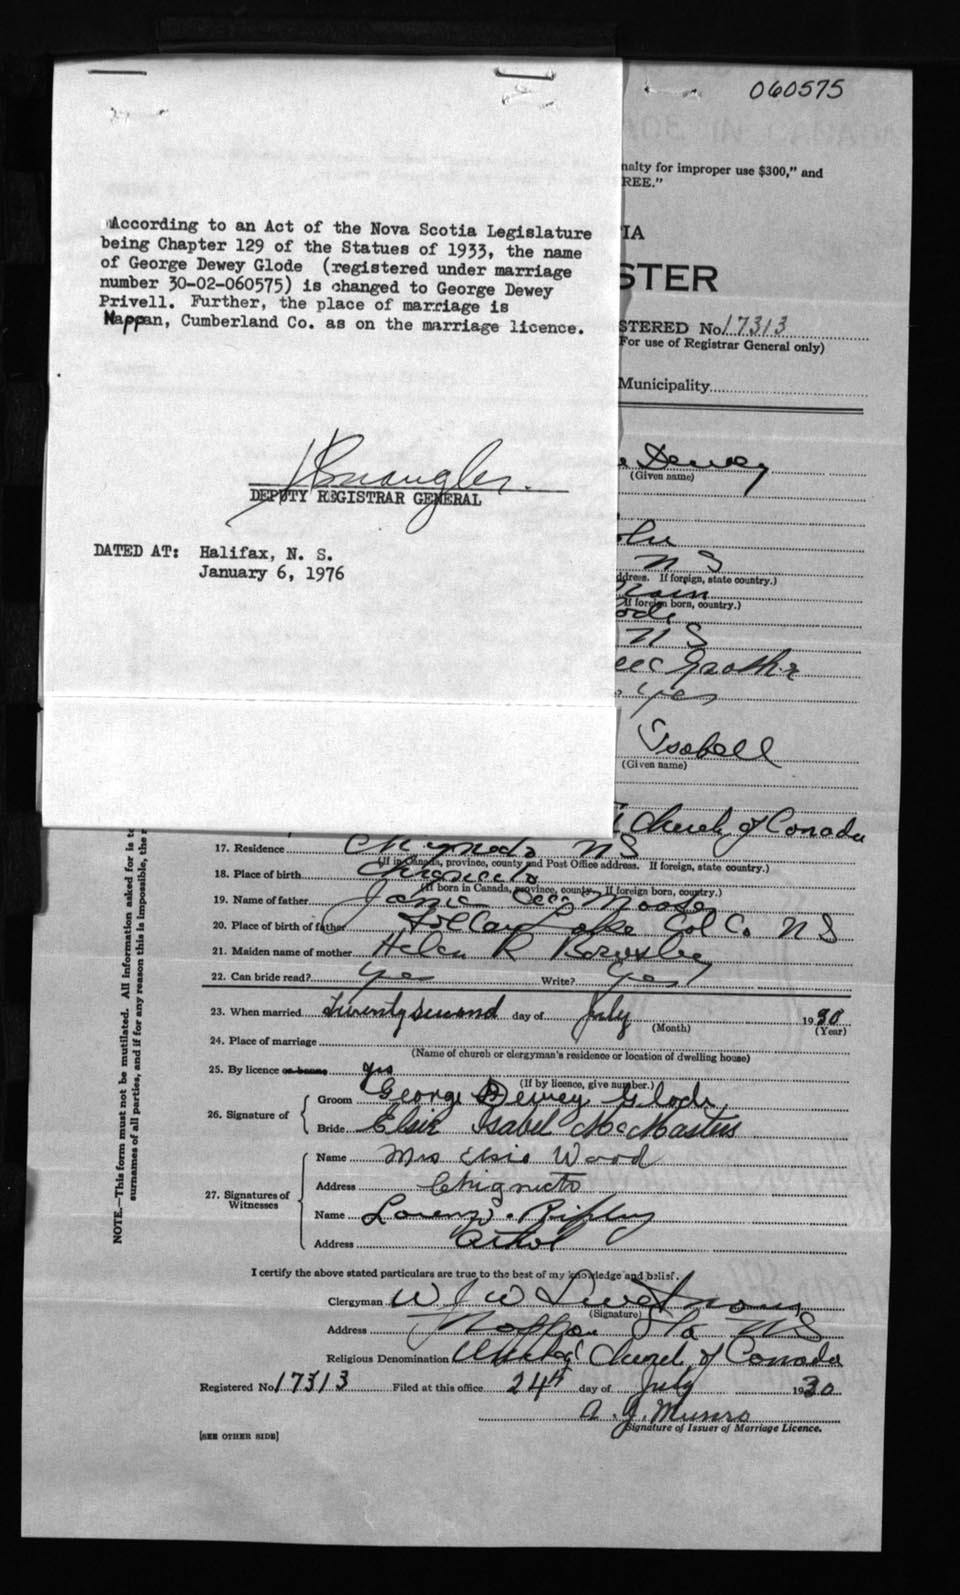 060575
nalty for improper use $300," and
REE."
IA
STER
STERED No. 17313
For use of Registrar General only)
Municipality
According to an Act of the Nova Scotia Legislature
being Chapter 129 of the Statues of 1933, the name
of George Dewey Glode (registered under marriage
number 30-02-060575) is changed to George Dewey
Privell. Further, the place of marriage is
Nappan, Cumberland Co. as on the marriage licence.
DEPUTY REGISTRAR GENERAL
DATED AT: Halifax, N. S.
January 6, 1976
Dewey
(Given name)
N S
ddress. If foreign, state country.)
If foreign born, country.)
N S
yes
Isabell
(Given name)
Church of Canada
17. Residence Chignecto N S
(If in Canada, province, county and Post Office address. If foreign, state country.)
18. Place of birth Chignecto
(If born in Canada, province, county. If foreign born, country.)
19. Name of father
20. Place of birth of father Folly Lake Col Co. N S
21. Maiden name of mother Helen R
22. Can bride read? yes Write? yes
23. When married Twenty second day of July 1930
(Month) (Year)
24. Place of marriage
(Name of church or clergyman's residence or location of dwelling house)
25. By licence or banns yes
(If by licence, give number.)
26. Signature of Groom George Dewey Glode
Bride Elsie Isabel McMasters
27. Signatures of Witnesses
Name Mrs Elsie Wood
Address Chignecto
Name Lorenzo Ripley
Address Athol
I certify the above stated particulars are true to the best of my knowledge and belief.
Clergyman W J W
(Signature)
Address Nappan Sta N S
Religious Denomination United Church of Canada
Registered No. 17313 Filed at this office 24th day of July 1930
A. J. Munro
Signature of Issuer of Marriage Licence.
[SEE OTHER SIDE]
NOTE.—This form must not be mutilated. All information asked for is to
surnames of all parties, and if for any reason this is impossible, the r